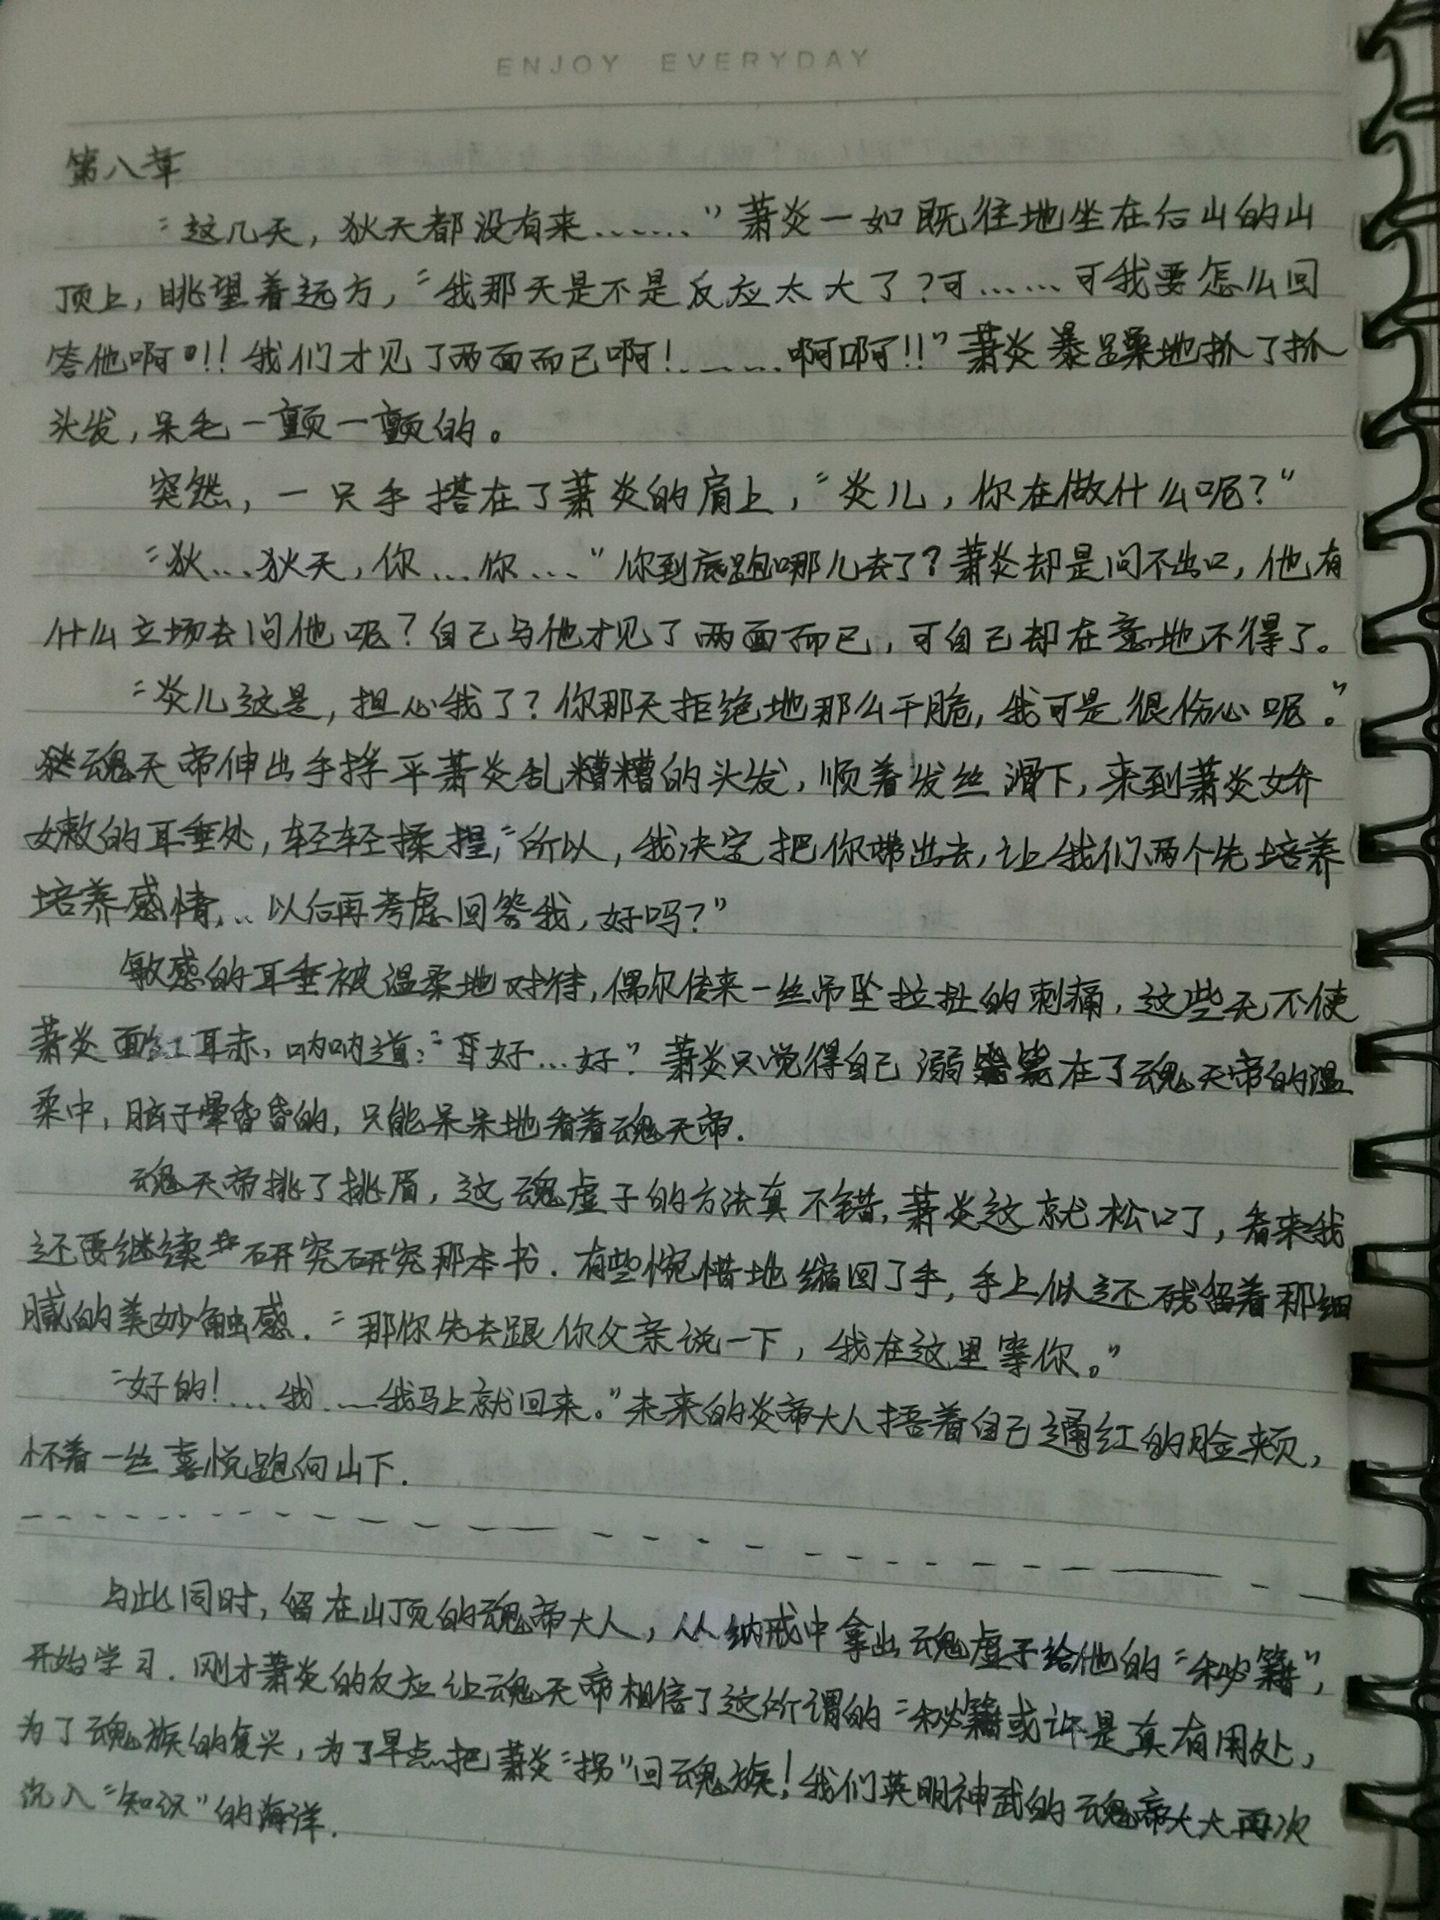 ENJOY EVERYDAY
第八章
“这几天，狄天都没有来……”萧炎一如既往地坐在后山的山
顶上，眺望着远方，“我那天是不是反应太大了？可……可我要怎么回
答他啊！！我们才见了两面而已啊！……啊啊！！”萧炎暴躁地抓了抓
头发，呆毛一颤一颤的。
突然，一只手搭在了萧炎的肩上，“炎儿，你在做什么呢？”
“狄…狄天，你…你…”你到底跑哪儿去了？萧炎却是问不出口，他有
什么立场去问他呢？自己与他才见了两面而已，可自己却在意地不得了。
“炎儿这是，担心我了？你那天拒绝地那么干脆，我可是很伤心呢。”
魂天帝伸出手捋平萧炎乱糟糟的头发，顺着发丝滑下，来到萧炎娇
嫩的耳垂处，轻轻揉捏，“所以，我决定把你带出去，让我们两个先培养
培养感情，…以后再考虑回答我，好吗？”
敏感的耳垂被温柔地对待，偶尔传来一丝吊坠拉扯的刺痛，这些无不使
萧炎面红耳赤，呐呐道：“好…好”萧炎只觉得自己溺毙在了魂天帝的温
柔中，脑子晕昏昏的，只能呆呆地看着魂天帝.
魂天帝挑了挑眉，这魂虚子的方法真不错，萧炎这就松口了，看来我
还要继续研究研究那本书.有些惋惜地缩回了手，手上似还残留着那细
腻的美妙触感.“那你先去跟你父亲说一下，我在这里等你。”
“好的！…我……我马上就回来。”未来的炎帝大人捂着自己通红的脸颊，
怀着一丝喜悦跑向山下.
与此同时，留在山顶的魂帝大人，从纳戒中拿出魂虚子给他的“秘籍”，
开始学习.刚才萧炎的反应让魂天帝相信了这所谓的“秘籍或许是真有用处，
为了魂族的复兴，为了早点把萧炎“拐”回魂族！我们英明神武的魂帝大大再次
沉入“知识”的海洋.